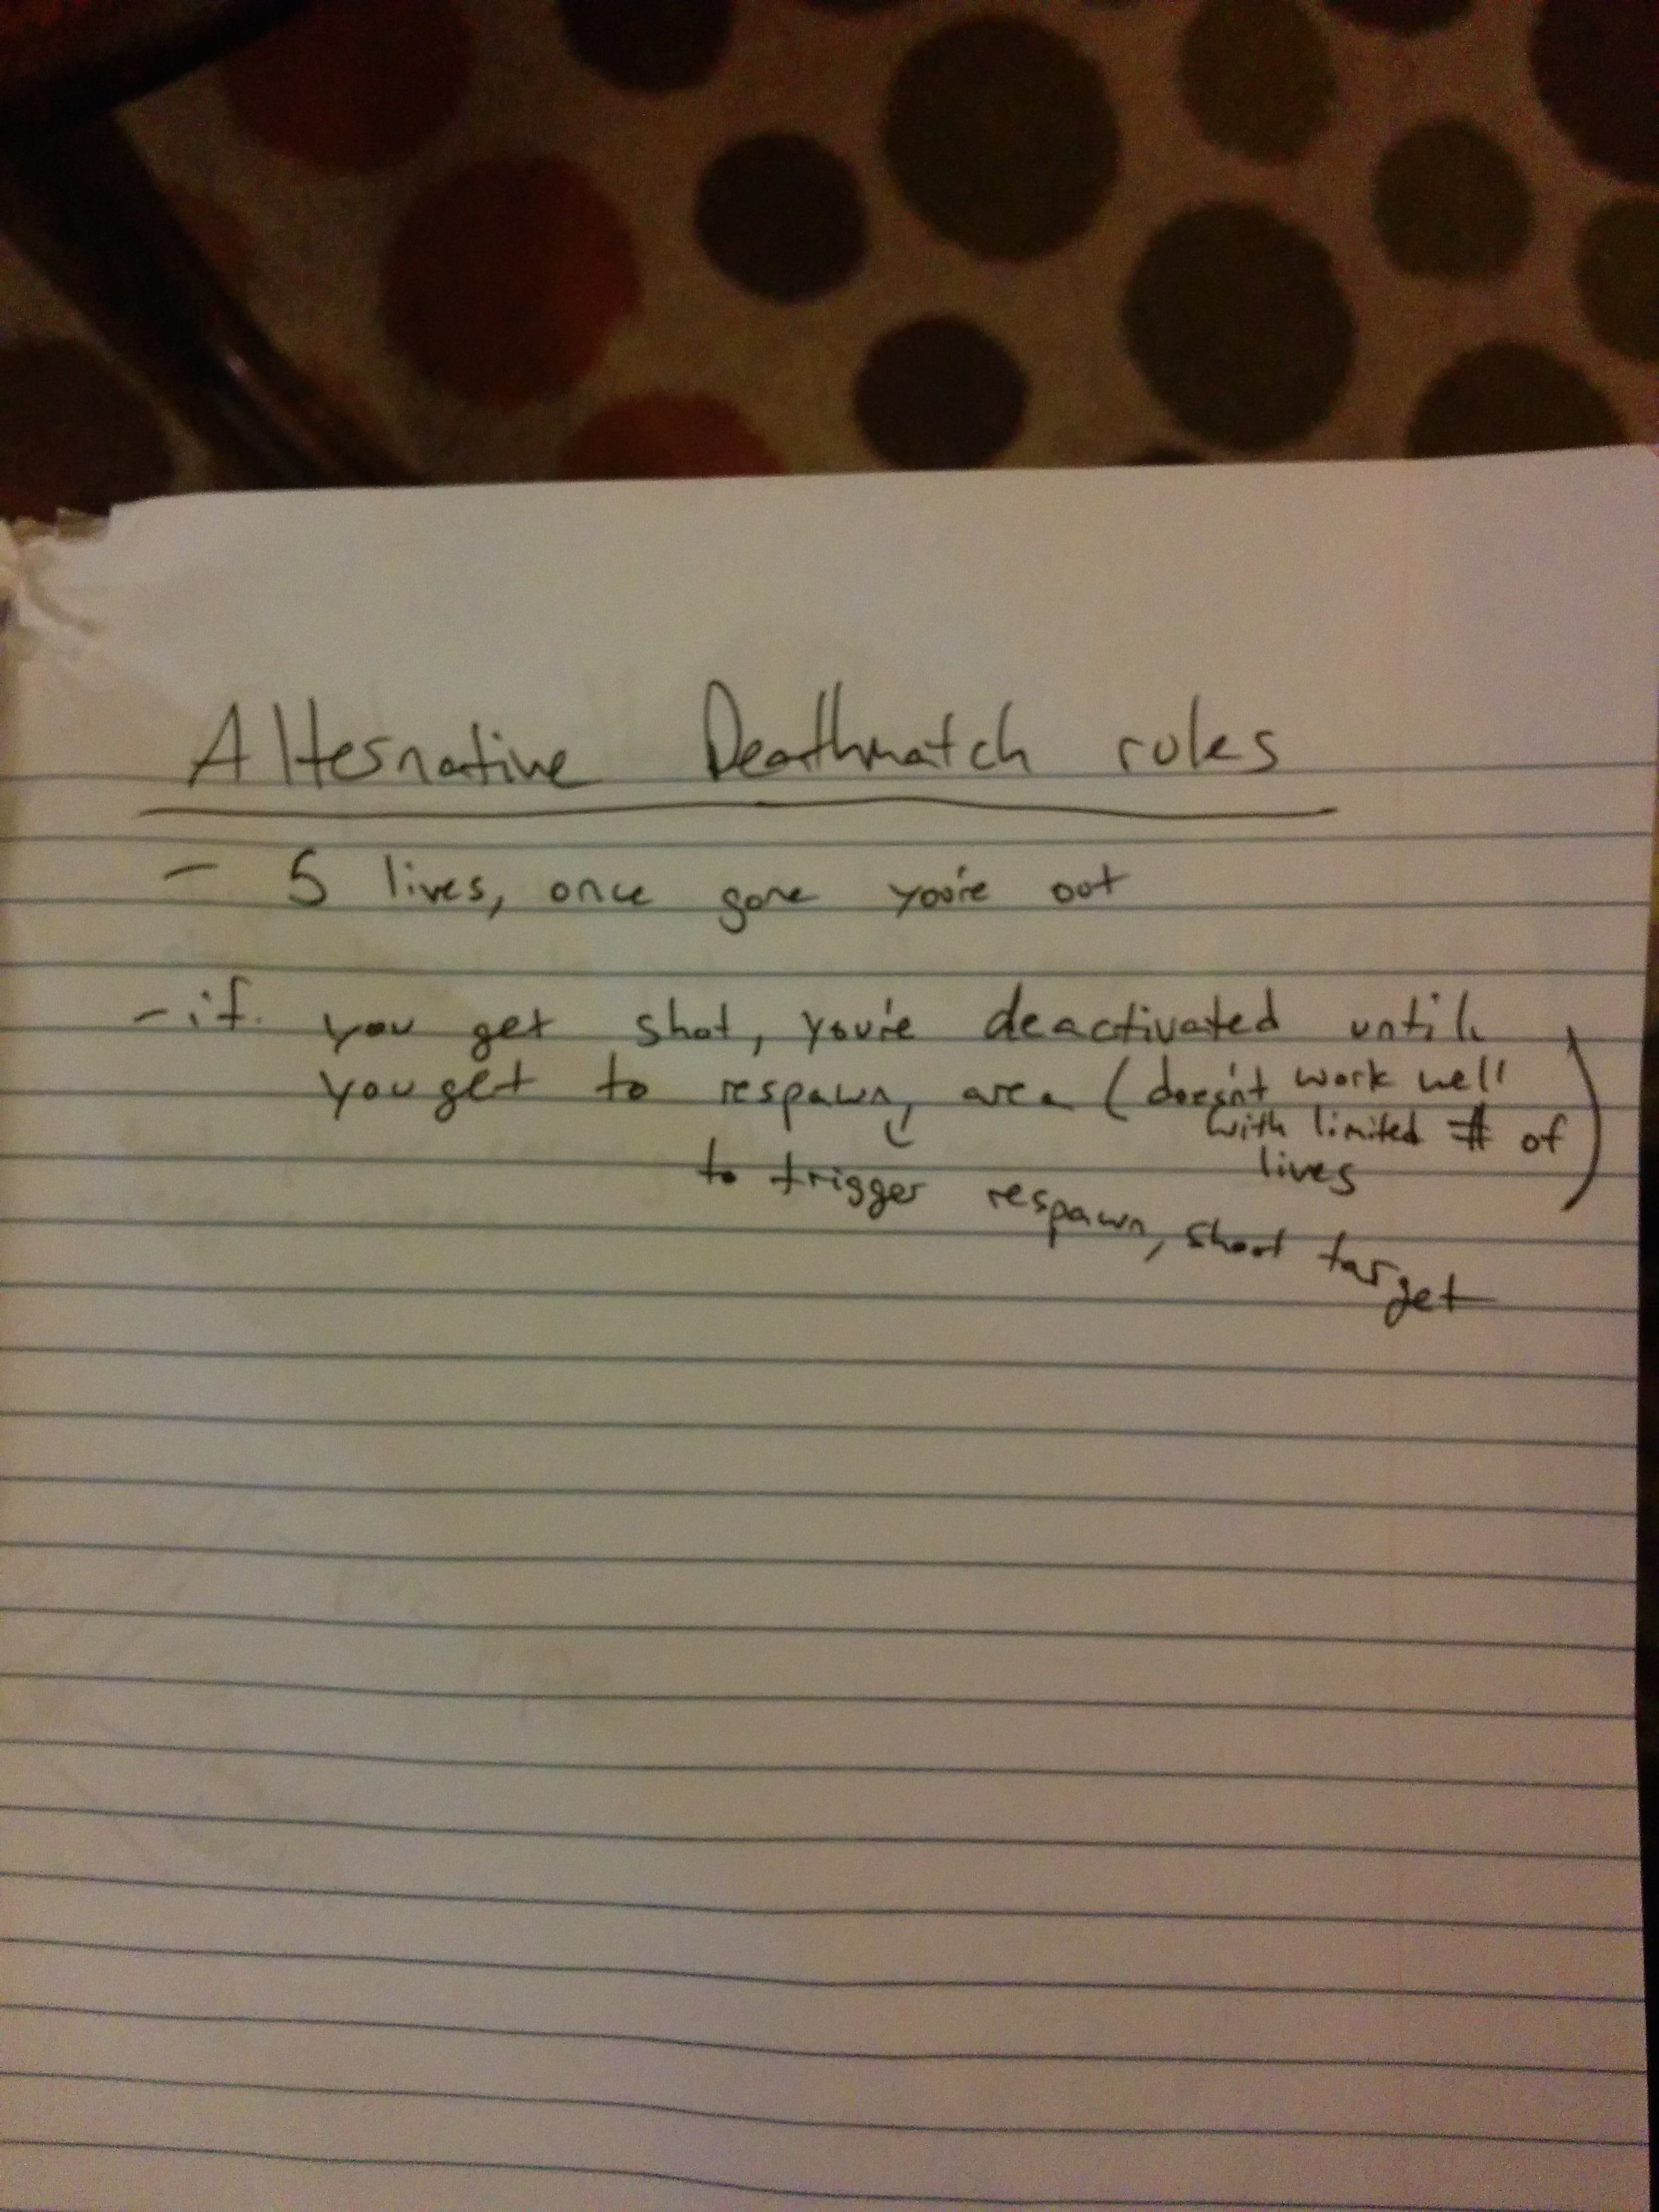 Alternative Deathmatch rules
- 5 lives, once gone you're out
- if you get shot, you're deactivated until
you get to respawn area (doesn't work well
with limited # of
lives)
to trigger respawn, shoot target